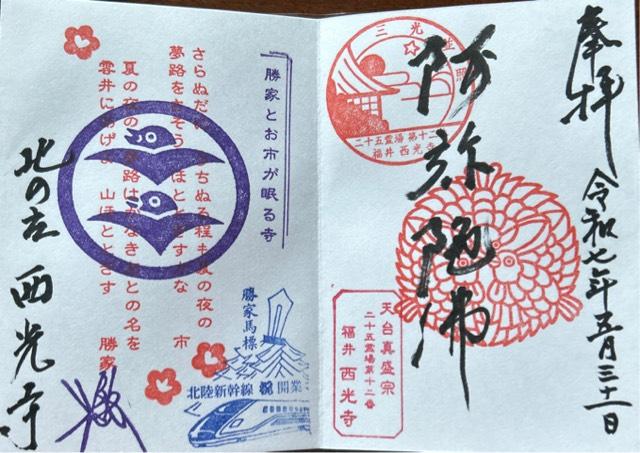 奉拝
令和七年五月三十一日
三光
照
二十五霊場 第十二
福井 西光寺
阿弥陀佛
天台真盛宗
二十五霊場第十二番
福井 西光寺
勝家とお市が眠る寺
さらぬだに うちぬる程も夏の夜の
夢路をさそう ほととぎすかな 市
夏の夜の 夢路はかなき あとの名を
雲井にあげよ 山ほととぎす 勝家
勝家馬標
北陸新幹線 祝 開業
北の庄 西光寺